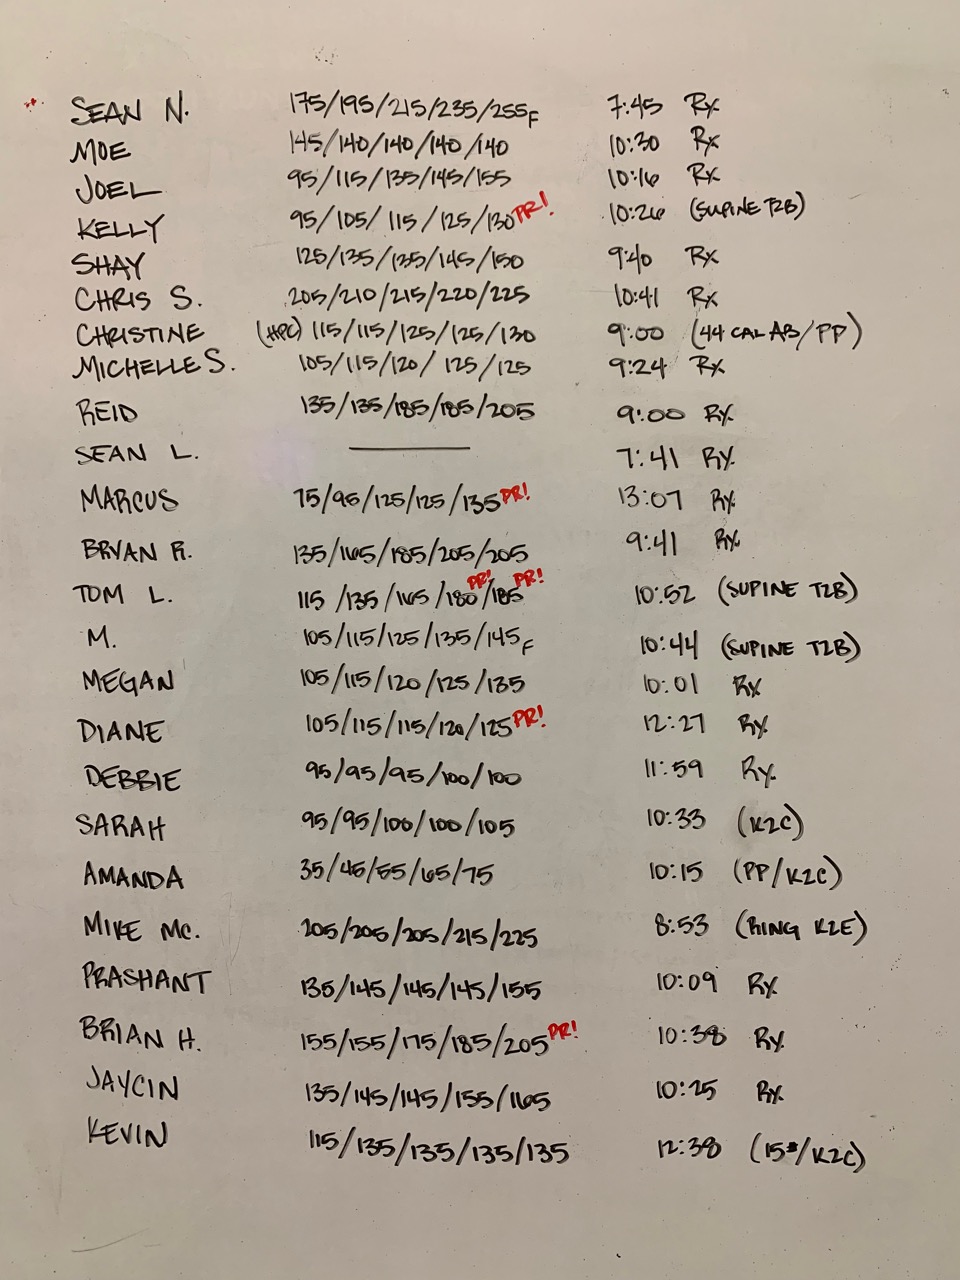 SEAN N. 175/195/215/235/255F 7:45 Rx
MOE 145/140/140/140/140 10:30 Rx
JOEL 95/115/135/145/155 10:16 Rx
KELLY 95/105/115/125/130 PR! 10:26 (SUPINE T2B)
SHAY 125/135/135/145/150 9:40 Rx
CHRIS S. 205/210/215/220/225 10:41 Rx
CHRISTINE (HPC) 115/115/125/125/130 9:00 (44 CAL AB/PP)
MICHELLE S. 105/115/120/125/125 9:24 Rx
REID 135/135/185/185/205 9:00 Rx
SEAN L. — 7:41 Rx
MARCUS 75/95/125/125/135 PR! 13:07 Rx
BRYAN R. 135/165/185/205/205 9:41 Rx
TOM L. 115/135/165/180 PR!/185 PR! 10:52 (SUPINE T2B)
M. 105/115/125/135/145F 10:44 (SUPINE T2B)
MEGAN 105/115/120/125/135 10:01 Rx
DIANE 105/115/115/120/125 PR! 12:27 Rx
DEBBIE 95/95/95/100/100 11:59 Rx
SARAH 95/95/100/100/105 10:33 (K2C)
AMANDA 35/45/55/65/75 10:15 (PP/K2C)
MIKE MC. 205/205/205/215/225 8:53 (RING K2E)
PRASHANT 135/145/145/145/155 10:09 Rx
BRIAN H. 155/155/175/185/205 PR! 10:38 Rx
JAYCIN 135/145/145/155/165 10:25 Rx
KEVIN 115/135/135/135/135 12:38 (15#/K2C)